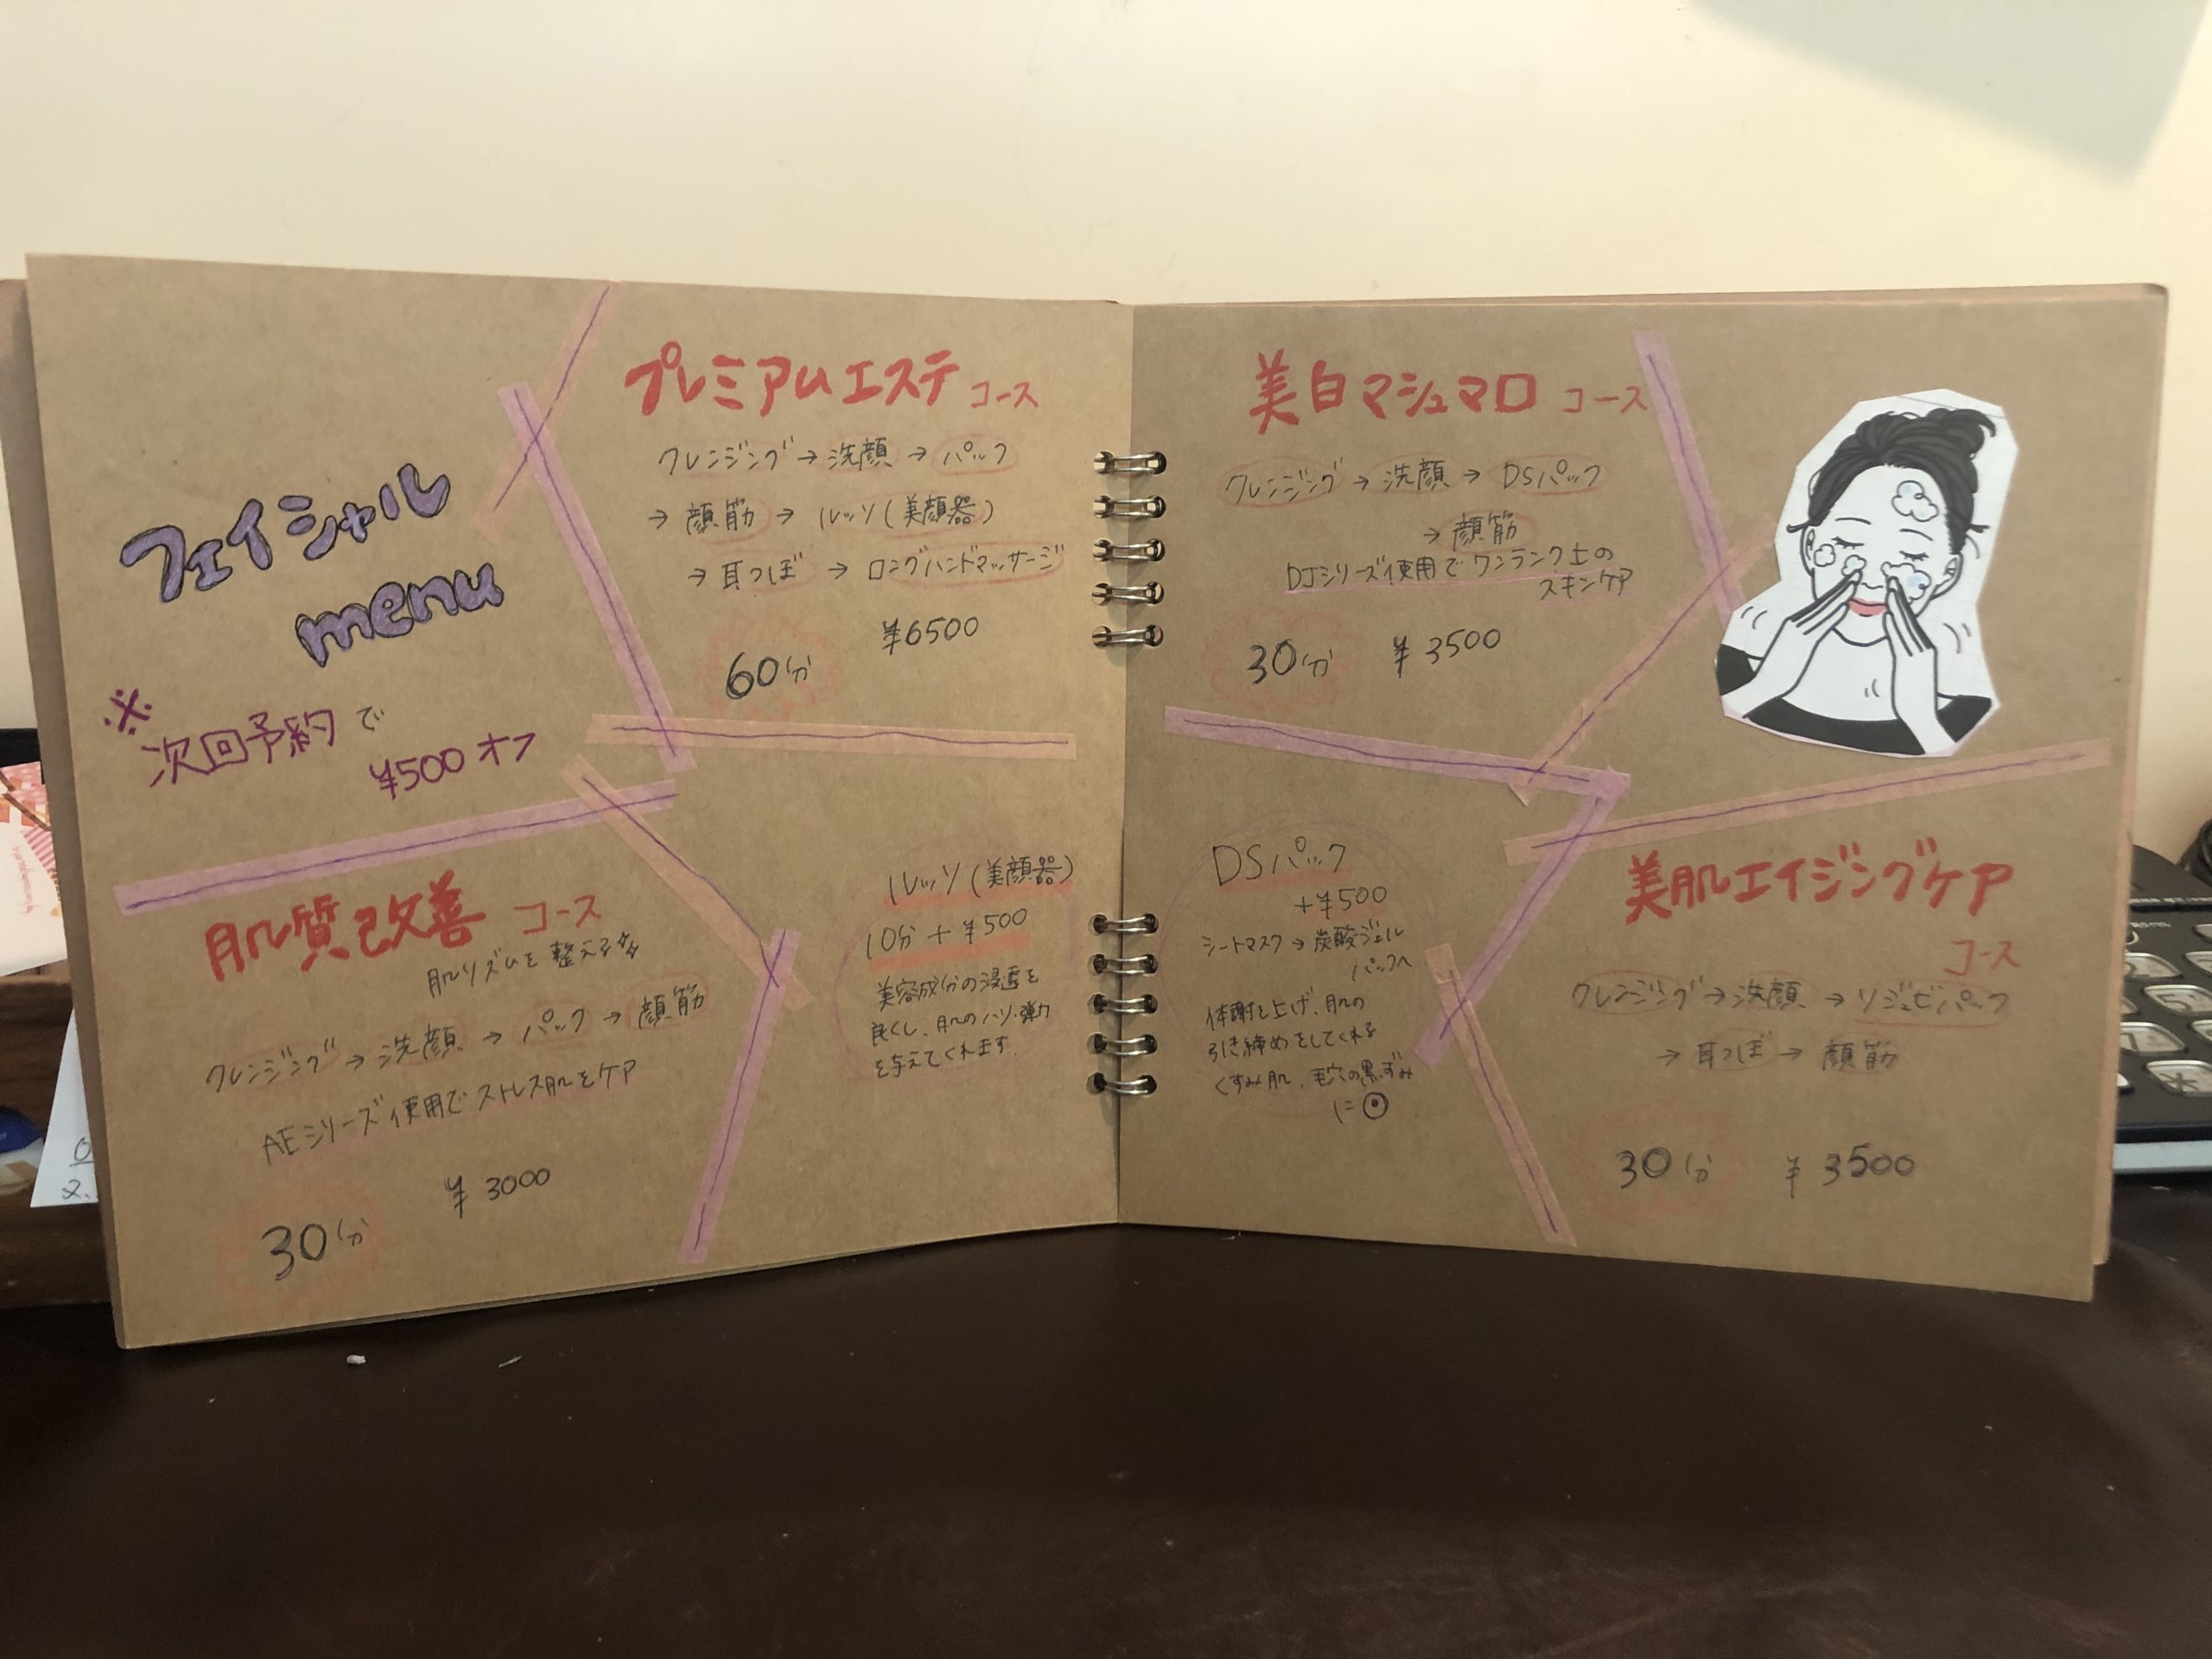 フェイシャル
menu
※
次回予約で
¥500オフ
プレミアムエステ コース
クレンジング→洗顔→パック
→顔筋→ルッソ(美顔器)
→耳つぼ→ロングハンドマッサージ
60分 ¥6500
肌質改善 コース
肌リズムを整える
クレンジング→洗顔→パック→顔筋
AEシリーズ使用でストレス肌をケア
30分 ¥3000
ルッソ(美顔器)
10分+¥500
美容成分の浸透を
良くし、肌のハリ・弾力
を与えてくれます。
美白マシュマロ コース
クレンジング→洗顔→DSパック
→顔筋
DJシリーズ使用でワンランク上の
スキンケア
30分 ¥3500
DSパック
+¥500
シートマスク→炭酸ジェル
パックへ
体謝を上げ、肌の
引き締めをしてくれる
くすみ肌、毛穴の黒ずみ
に◎
美肌エイジングケア
コース
クレンジング→洗顔→リジュビパック
→耳つぼ→顔筋
30分 ¥3500